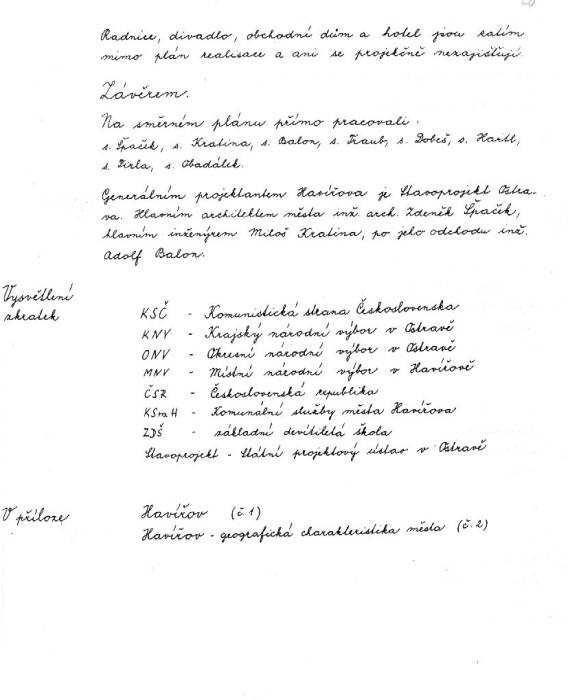 Radnice, divadlo, obchodní dům a hotel jsou zatím
mimo plán realisace a ani se projekčně nezajišťují.
Závěrem.
Na směrném plánu přímo pracovali:
s. Špaček, s. Kratina, s. Balon, s. Traub, s. Dobeš, s. Hartl,
s. Pirla, s. Obadálek.
Generálním projektantem Havířova je Stavoprojekt Ostra-
va. Hlavním architektem města inž. arch. Zdeněk Špaček,
hlavním inženýrem Miloš Kratina, po jeho odchodu inž.
Adolf Balon.
Vysvětlení
zkratek
KSČ - Komunistická strana Československa
KNV - Krajský národní výbor v Ostravě
ONV - Okresní národní výbor v Ostravě
MNV - Místní národní výbor v Havířově
ČSR - Československá republika
KSmH - Komunální služby města Havířova
ZDŠ - základní devítiletá škola
Stavoprojekt - Státní projektový ústav v Ostravě
V příloze
Havířov (č.1)
Havířov - geografická charakteristika města (č.2)